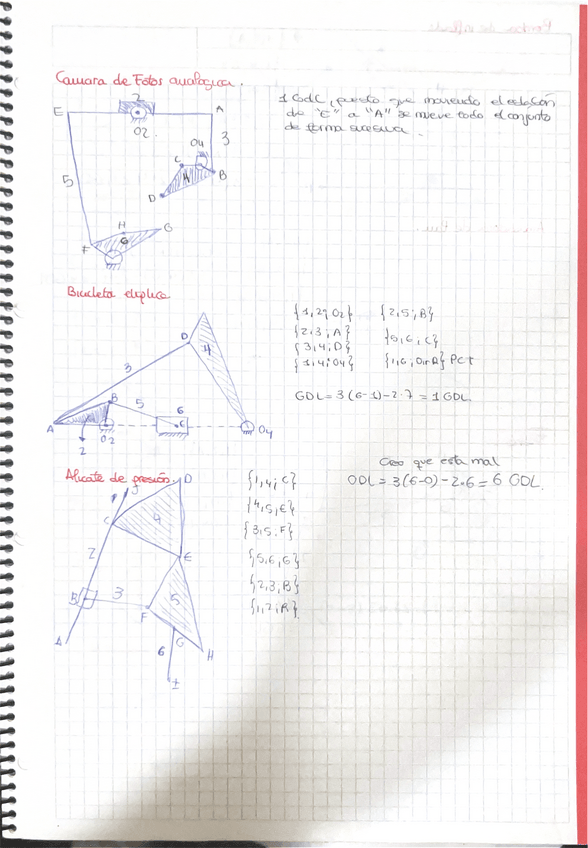 Camara de Fotos analogica.
2
E
A
O2
3
O4
C
B
4
D
5
H
G
6
F
1 GdL, puesto que moviendo el eslabón
de "E" a "A" se mueve todo el conjunto
de forma sucesiva.
Bicicleta eliptica
D
4
3
B
5
6
C
A
O2
O4
2
{1,2; O2} {2,5; B}
{2,3; A} {5,6; C}
{3,4; D}
{1,4; O4} {1,6; OinR} PCT
GDL = 3(6-1) - 2·7 = 1 GDL.
Alicate de presión
D
J
C
4
2
E
B
3
F
5
A
G
6
H
I
{1,4; C}
{4,5; E}
{3,5; F}
{5,6; G}
{2,3; B}
{1,2; A}
Creo que esta mal
GDL = 3(6-0) - 2·6 = 6 GDL.